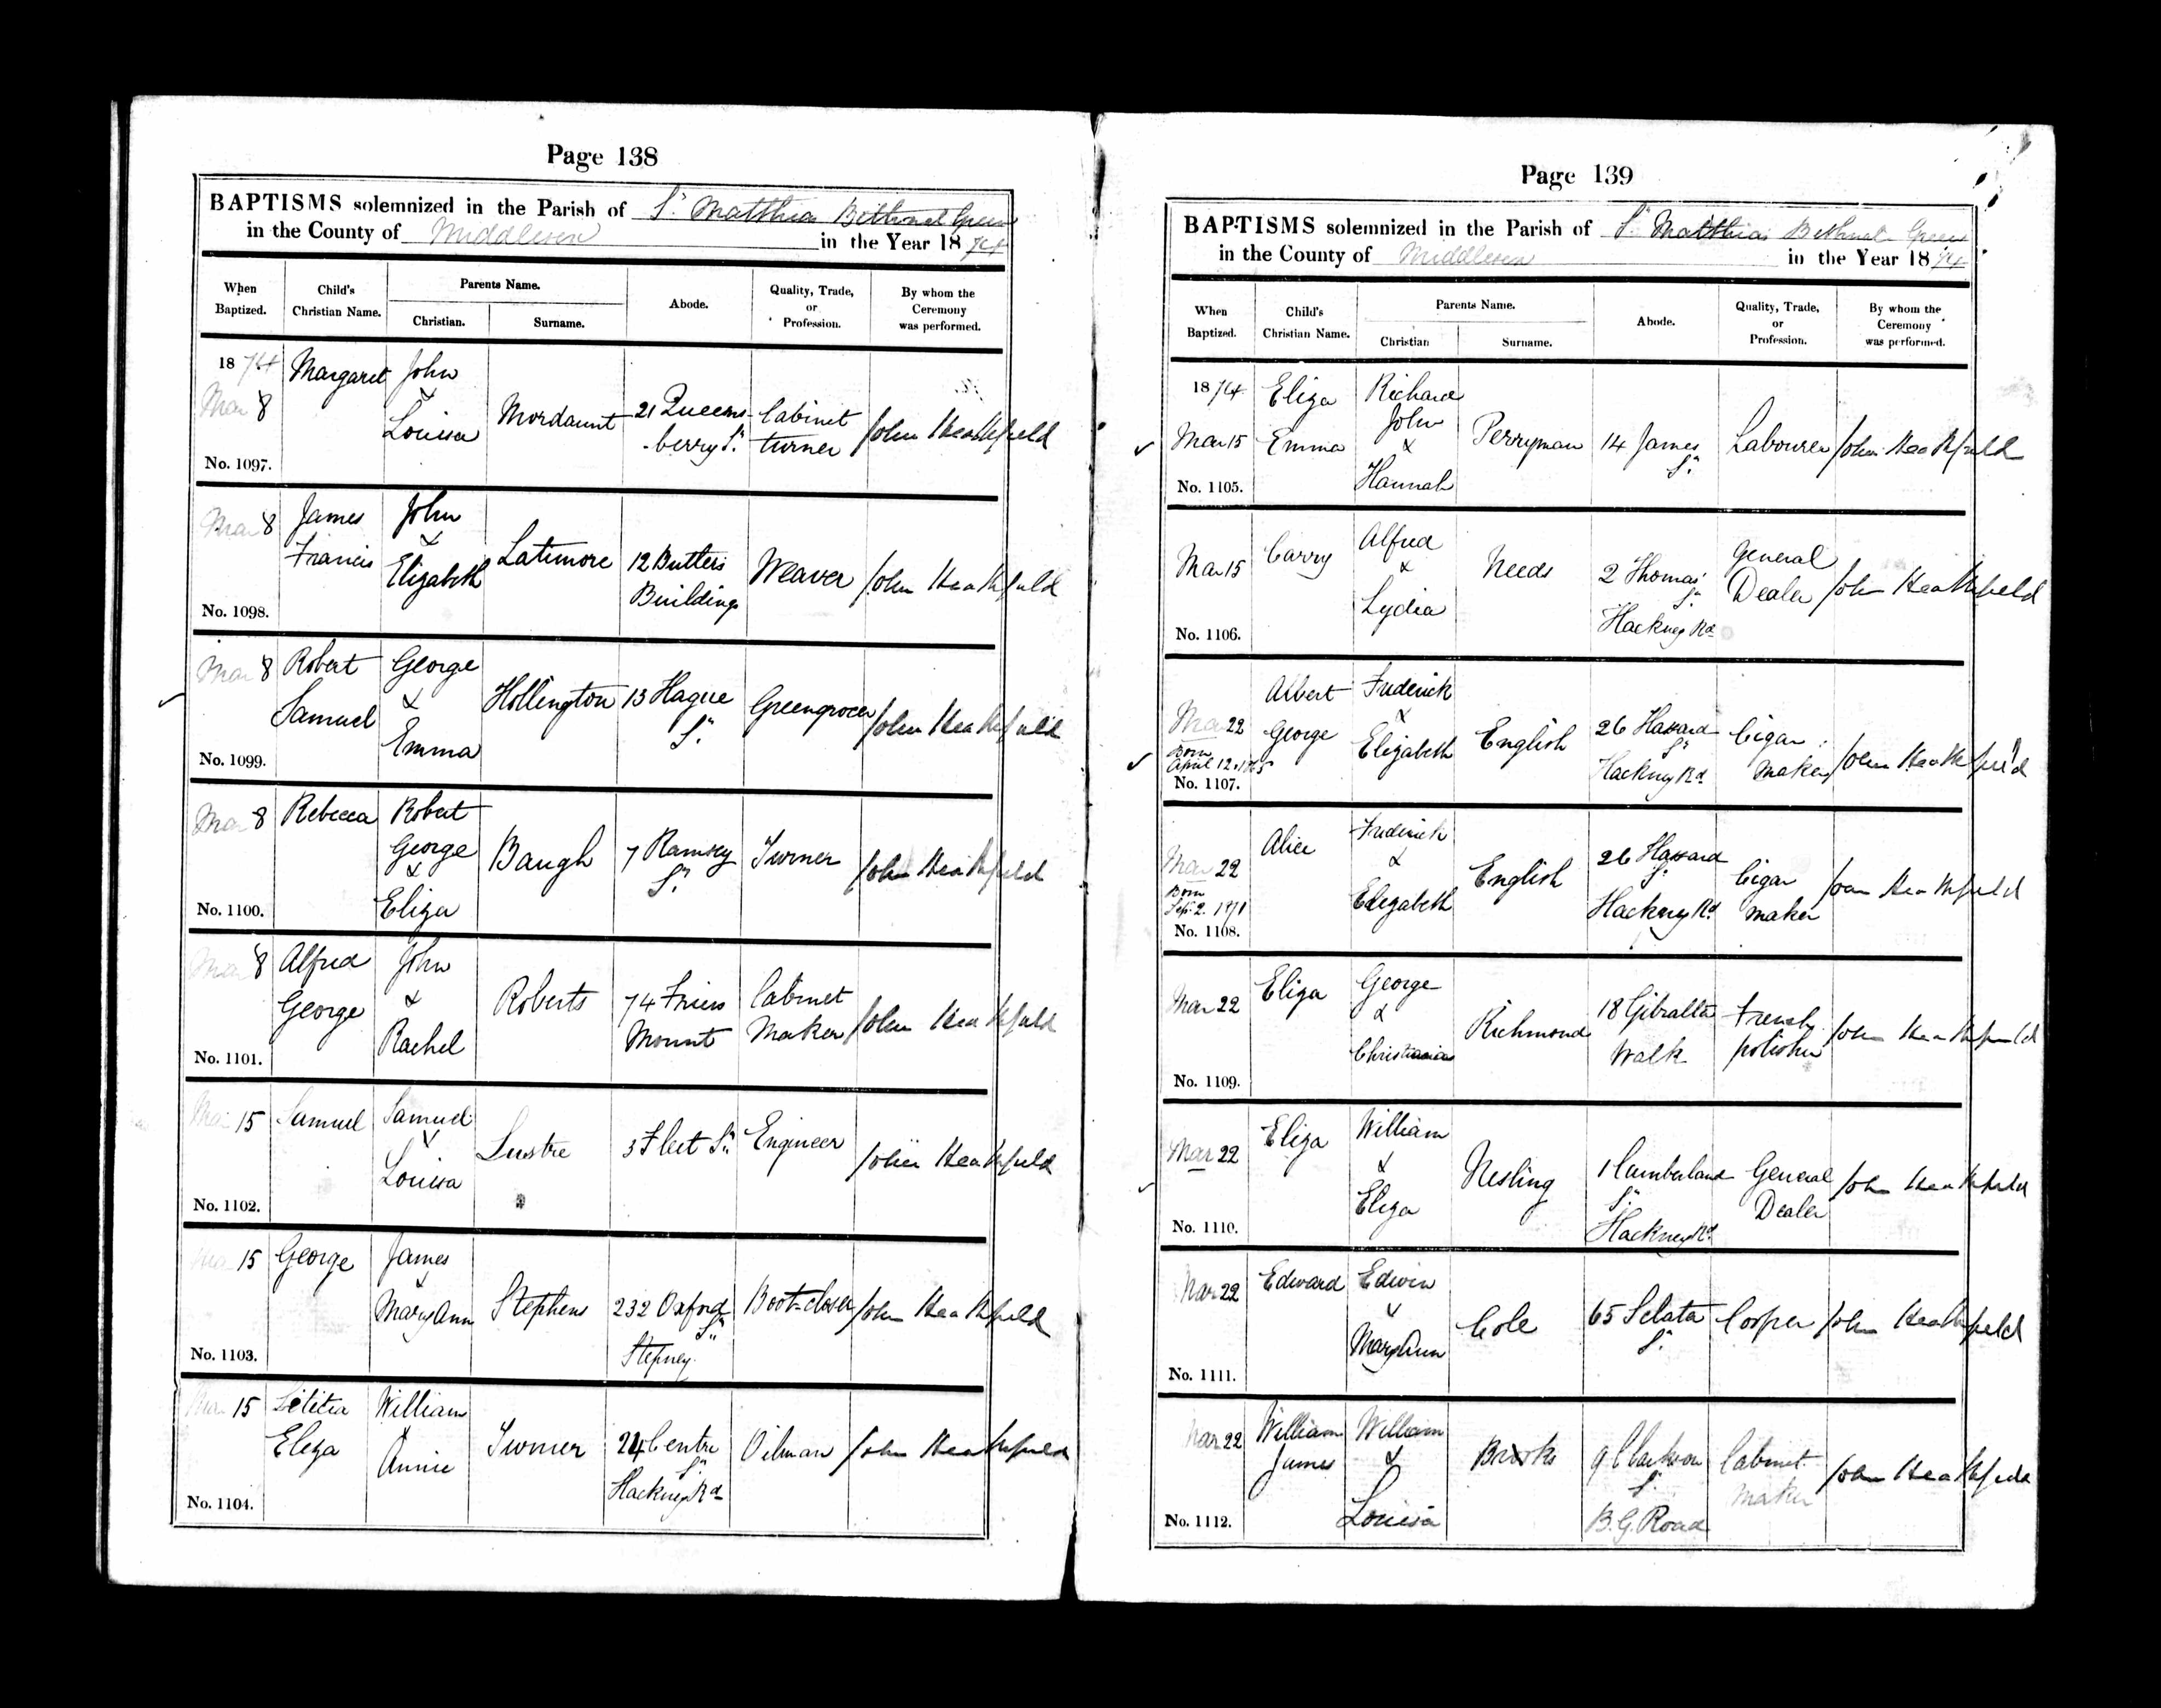 Page 138
BAPTISMS solemnized in the Parish of St Matthias Bethnal Green
in the County of Middlesex in the Year 1874
When Baptized.
Child's Christian Name.
Parents Name.
Christian.
Surname.
Abode.
Quality, Trade, or Profession.
By whom the Ceremony was performed.
1874
Mar 8
No. 1097.
Margaret
John
&
Louisa
Mordaunt
21 Queens-
-berry St.
Cabinet
turner
John Heathfield
Mar 8
No. 1098.
James
Francis
John
&
Elizabeth
Latimore
12 Butlers
Buildings
Weaver
John Heathfield
Mar 8
No. 1099.
Robert
Samuel
George
&
Emma
Hollington
13 Hague
St.
Greengrocer
John Heathfield
Mar 8
No. 1100.
Rebecca
Robert
George
&
Eliza
Baugh
7 Ramsey
St.
Turner
John Heathfield
Mar 8
No. 1101.
Alfred
George
John
&
Rachel
Roberts
74 Friers
Mount
Cabinet
Maker
John Heathfield
Mar 15
No. 1102.
Samuel
Samuel
&
Louisa
Lustre
3 Fleet St.
Engineer
John Heathfield
Mar 15
No. 1103.
George
James
&
Mary Ann
Stephens
232 Oxford
St.
Stepney
Boot-closer
John Heathfield
Mar 15
No. 1104.
Letitia
Eliza
William
&
Annie
Turner
24 Centre
St.
Hackney Rd
Oilman
John Heathfield
Page 139
BAPTISMS solemnized in the Parish of St Matthias Bethnal Green
in the County of Middlesex in the Year 1874
When Baptized.
Child's Christian Name.
Parents Name.
Christian
Surname.
Abode.
Quality, Trade, or Profession.
By whom the Ceremony was performed.
1874
Mar 15
No. 1105.
Eliza
Emma
Richard
John
&
Hannah
Perryman
14 James
St.
Labourer
John Heathfield
Mar 15
No. 1106.
Carry
Alfred
&
Lydia
Needs
2 Thomas
St.
Hackney Rd
General
Dealer
John Heathfield
Mar 22
Born
April 12. 1865
No. 1107.
Albert
George
Frederick
&
Elizabeth
English
26 Hassard
St
Hackney Rd
Cigar
maker
John Heathfield
Mar 22
Born
Sep. 2. 1871
No. 1108.
Alice
Frederick
&
Elizabeth
English
26 Hassard
St.
Hackney Rd
Cigar
maker
John Heathfield
Mar 22
No. 1109.
Eliza
George
&
Christiania
Richmond
18 Gibralta
Walk
French
polisher
John Heathfield
Mar 22
No. 1110.
Eliza
William
&
Eliza
Nesling
1 Cumberland
St.
Hackney Rd
General
Dealer
John Heathfield
Mar 22
No. 1111.
Edward
Edwin
&
Mary Ann
Cole
65 Sclata
St.
Cooper
John Heathfield
Mar 22
No. 1112.
William
James
William
&
Louisa
Brooks
9 Clarkson
St.
B.G. Road
Cabinet
maker
John Heathfield